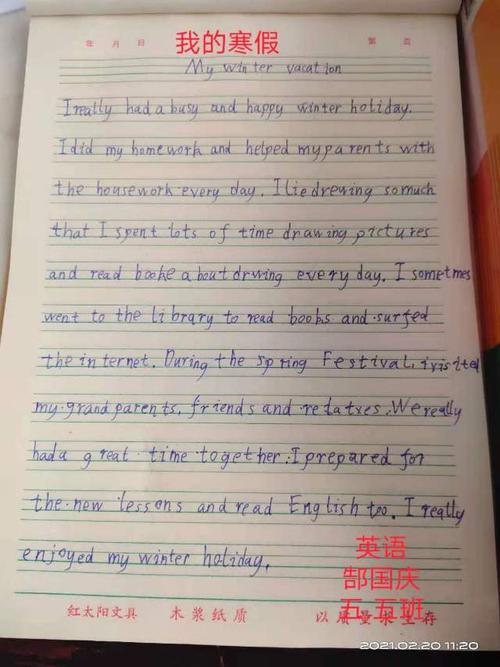 年 月 日 我的寒假 第 页
My winter vacation
I really had a busy and happy winter holiday.
I did my homework and helped my parents with
the housework every day. I lie drewing somuch
that I spent lots of time drawing pictures
and read booke about drwing every day. I sometmes
went to the library to read books and surfed
the internet. During the spring Festival, ivisited
my grandparents, friends and relatxes. We really
had a great time together. I prepared for
the new lessons and read English too. I really
enjoyed my winter holiday.
英语
郜国庆
五.五班
红太阳文具 木浆纸质 以质量求生存
2021.02.20 11:20